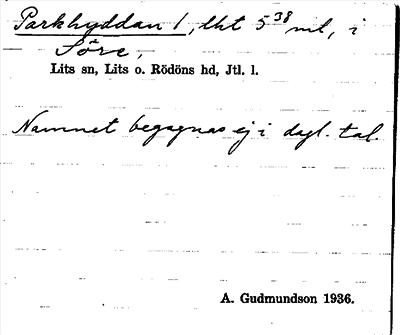 Parkhyddan 1, lht 5³⁸ ml, i
Söre,
Lits sn, Lits o. Rödöns hd, Jtl. l.
Namnet begagnas ej i dagl. tal.
A. Gudmundson 1936.